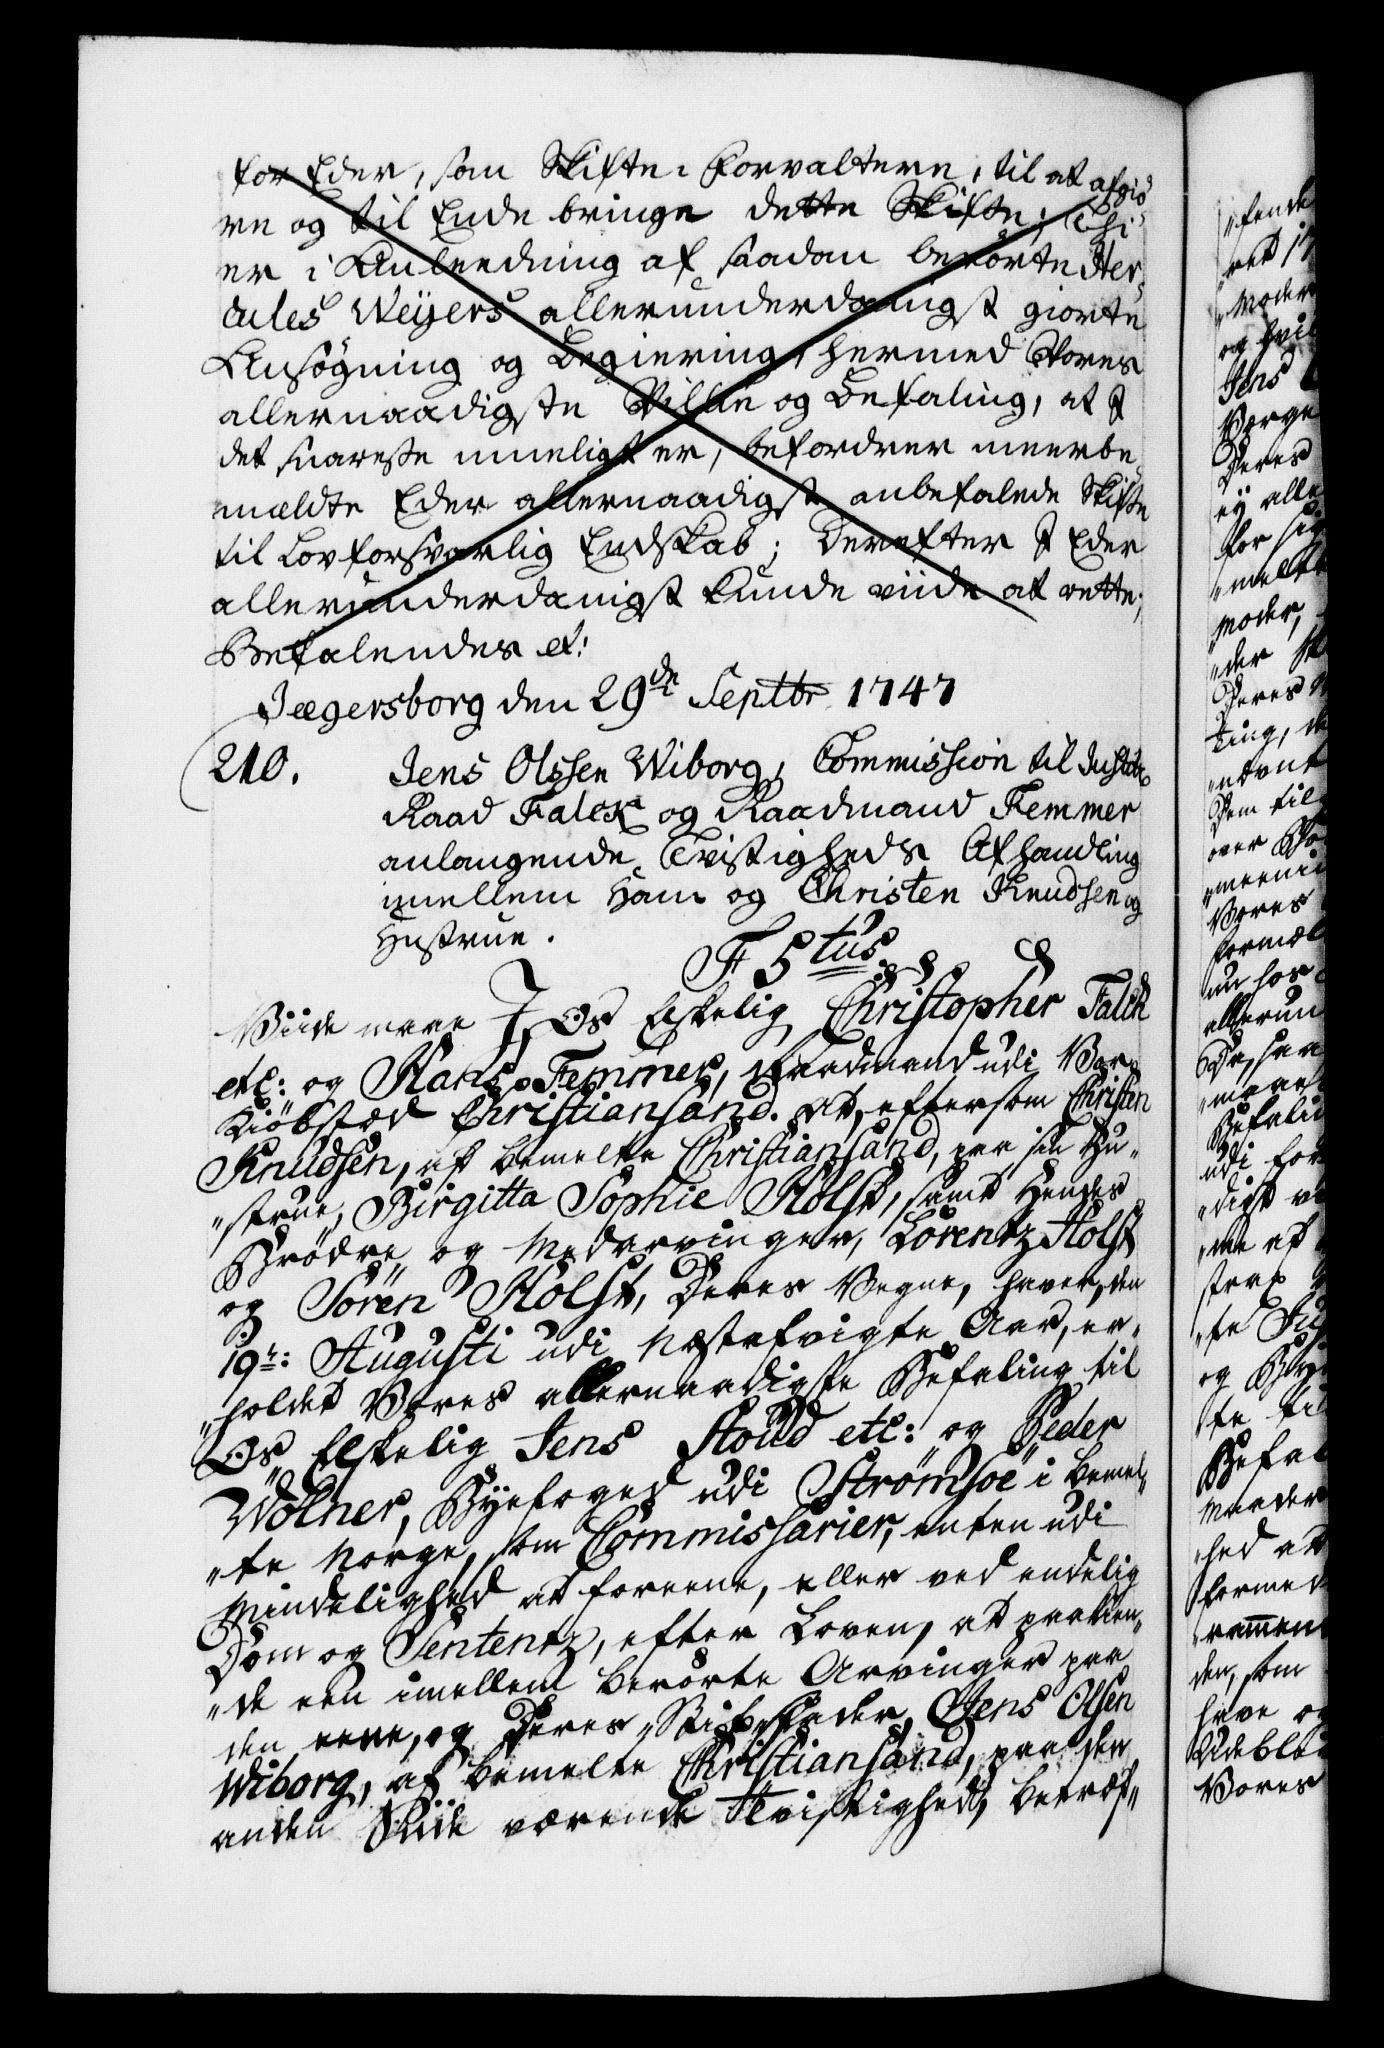 for Eder, som Skifte-Forvaltere, til at afgiö-
re og til Ende bringe dette Skifte; Thi
er i Anleedning af saadan berörte Her-
cules Weyers allerunderdanigst giorte
Ansögning og Begiering, hermed Vores
allernaadigste Villie og Befaling, at I
det snareste mueligt er, befordrer meerbe-
meldte Eder allernaadigst anbefalede Skifte
til Lovforsvarlig Endskab; Derefter I Eder
allerunderdanigst kunde viide at rette;
Befalendes etc:
Jægersborg den 29de Septbr 1747
210.
Jens Olssen Wiborg, Commission til Justice
Raad Falck og Raadmand Femmer
anlangende Tvistigheds Afhandling
imellem Ham og Christen Knudsen og
Hustrue.
F 5tus.
Viide maae I, Os Elskelig Christopher Falck
etc: og Hans Femmer, Raadmand udi Vor
Kiöbstæd Christiansand. At, eftersom Christen
Knudsen, af bemelte Christiansand, paa sin Hu-
"strue, Birgitta Sophie Holst, samt Hendes
Brödre og Medarvinger, Lorentz Holst
og Sören Holst, Deres Vegne, haver, den
19de: Augusti udi næstafvigte Aar, er-
"holdet Vores allernaadigste Befaling til
Os Elskelig Jens Stoud etc: og Peder
Wölner, Byefoged udi Strömsöe i bemel-
"te Norge, som Commissarier, enten udi
Mindelighed at foreene, eller ved endelig
Dom og Sententz, efter Loven, at paakien-
"de een imellem berörte Arvinger paa
den eene, og Deres Stif-Fader, Jens Olsen
Wiborg, af bemelte Christiansand, paa den
anden Side værende Tvistighed, betræf-